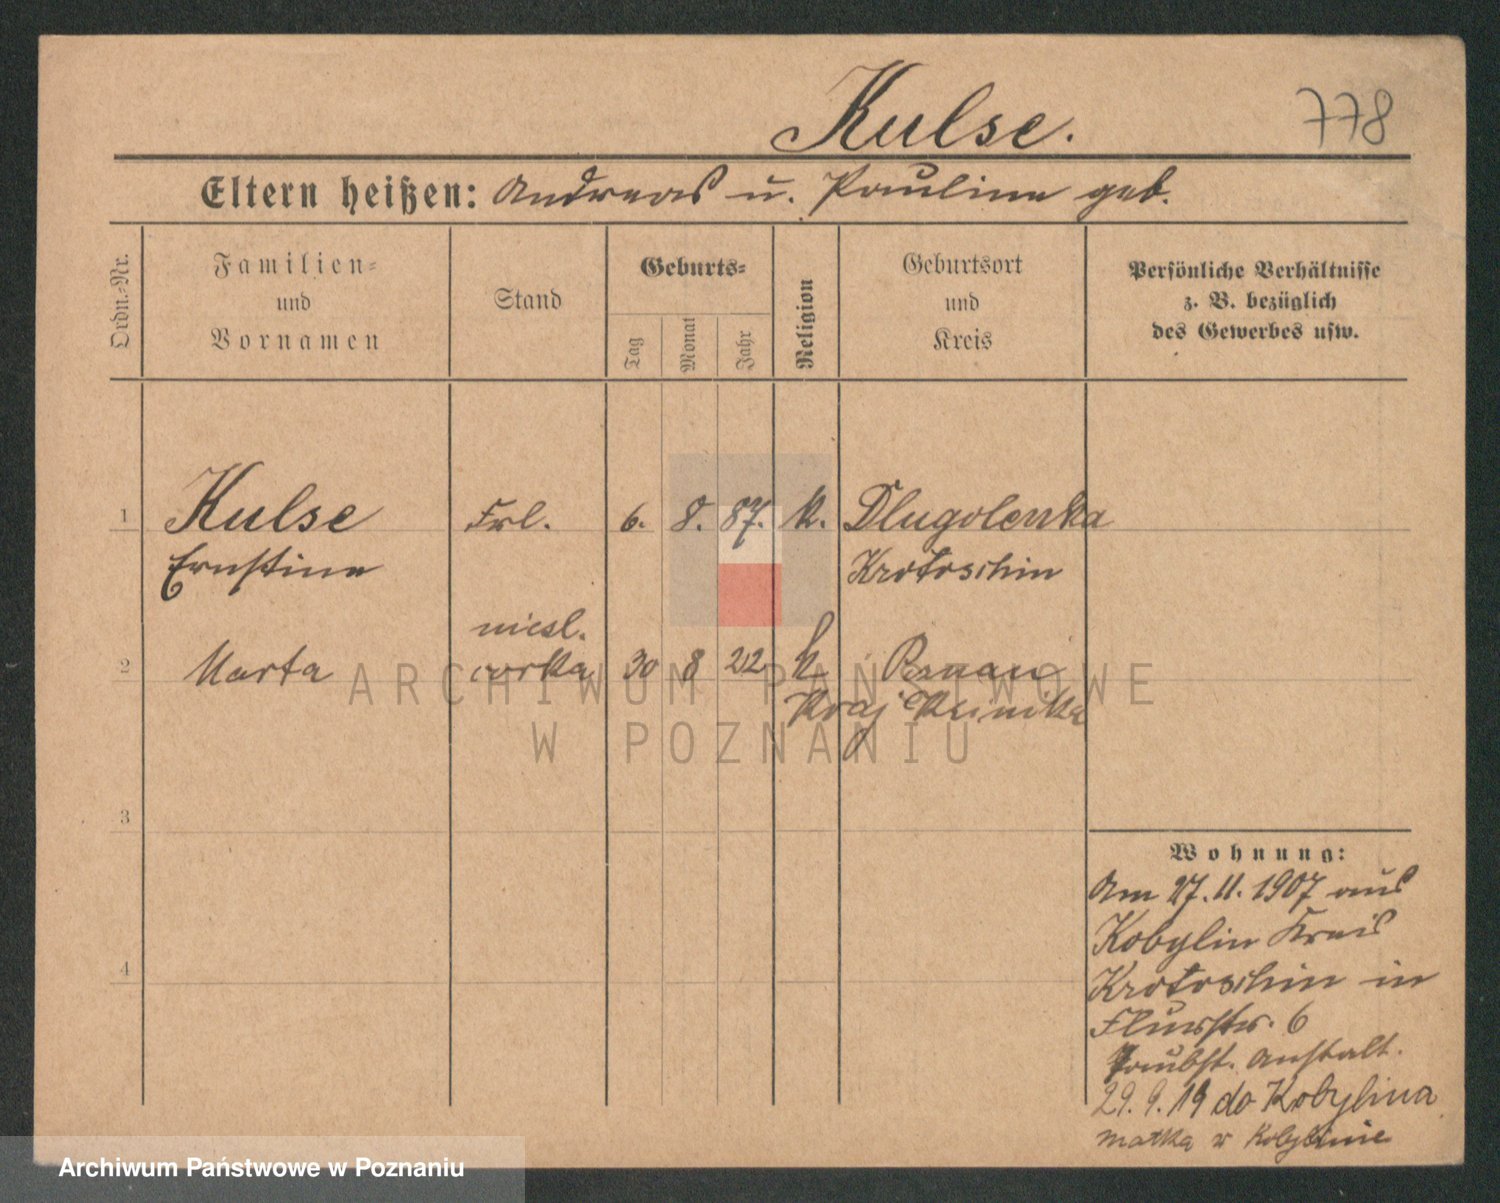 Kulse.
778
Eltern heißen: Andreas u. Pauline geb.
Ordn.-Nr.
Familien-
und
Vornamen
Stand
Geburts-
Tag
Monat
Jahr
Religion
Geburtsort
und
Kreis
Persönliche Verhältnisse
z. B. bezüglich
des Gewerbes usw.
1 Kulse Frl. 6. 8. 87. k. Dlugolenka
Ernstine Krotoschin
niesl.
2 Marta corka 30 8 22 k
Kraj
3
4
Wohnung:
Am 27.11.1907 aus
Kobylin Kreis
Krotoschin in
Flurstr. 6
Taubst. Anstalt.
29. 9. 19 do Kobylina
matka w Kobylinie
ARCHIWUM PAŃSTWOWE
W POZNANIU
Archiwum Państwowe w Poznaniu